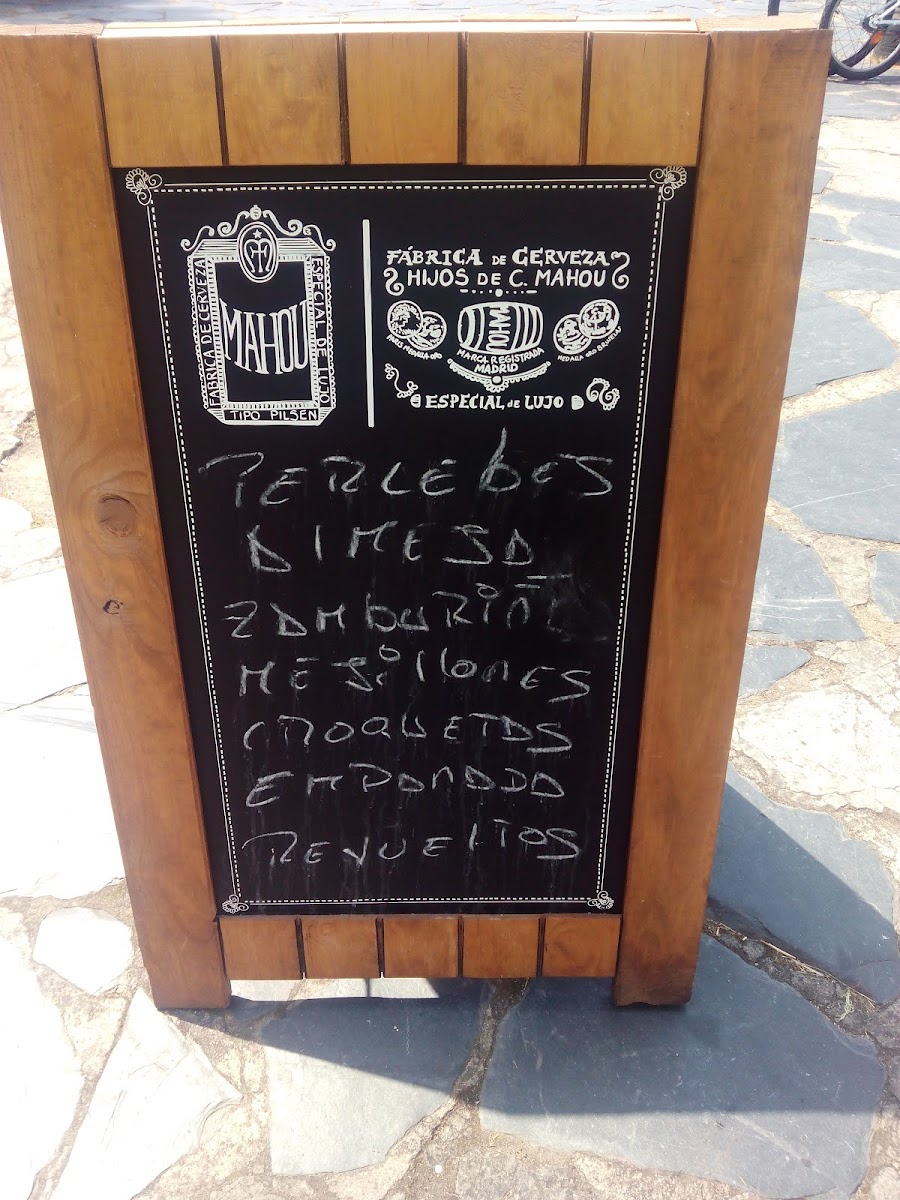 FÁBRICA DE CERVEZA
MAHOU
ESPECIAL DE LUJO
TIPO PILSEN
FÁBRICA DE CERVEZA
HIJOS DE C. MAHOU
MARCA REGISTRADA
MADRID
MEDALLA ORO BRUSELAS
ESPECIAL DE LUJO
PERCEbES
DIMESA
ZAMbURIÑA
MEJillONES
CROQUETAS
EMPANADA
REVUELTOS